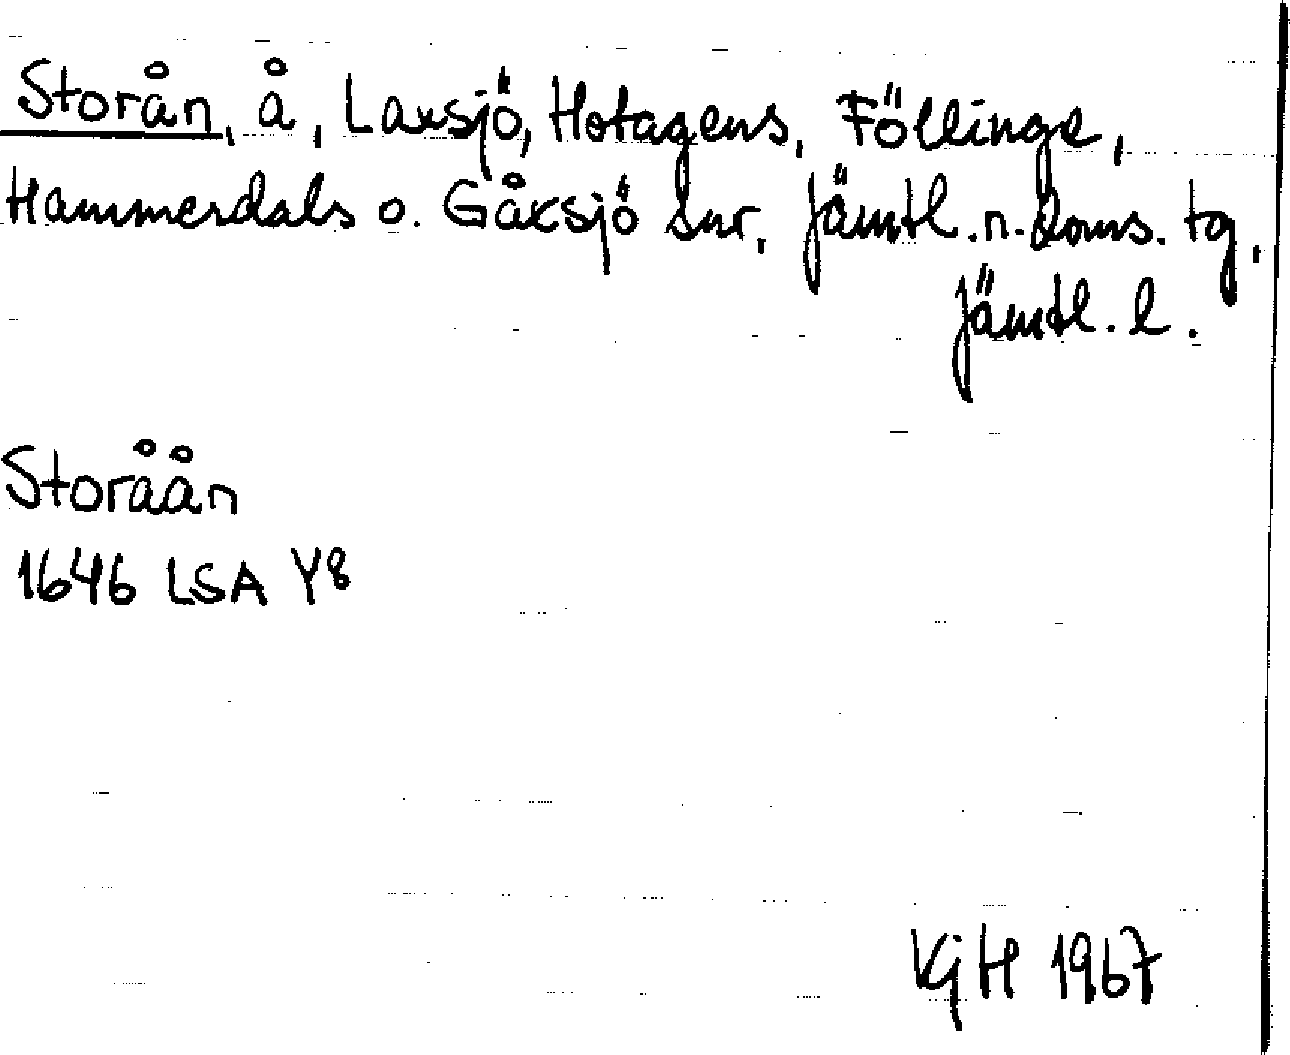 Storån, å, Laxsjö, Hotagens, Föllinge,
Hammerdals o. Gåxsjö snr, Jämtl. n. doms. tg,
Jämtl. l.
Storåån
1646 LSA Y8
VGjH 1967